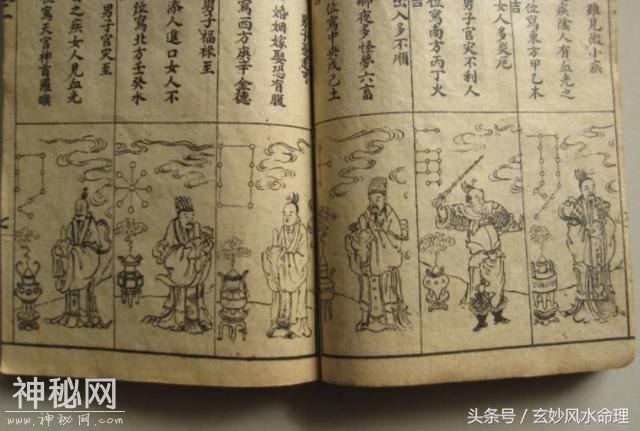 雖見微小疾
疾陰人有血光之
位寫東方甲乙木
吉
女人多災厄
男子官灾不利人
位寫南方丙丁火
吉
出入多不順
夜多怪夢六畜
位寫中央戊己土
婚姻嫁娶恐有腹
位寫西方庚辛金德
男子福祿至
添人進口女人不
位寫北方壬癸水
男子官灾至
之疾女人見血光
位寫天官神首羅睺
神秘网
www.神秘网.com
头条号 / 玄妙风水命理